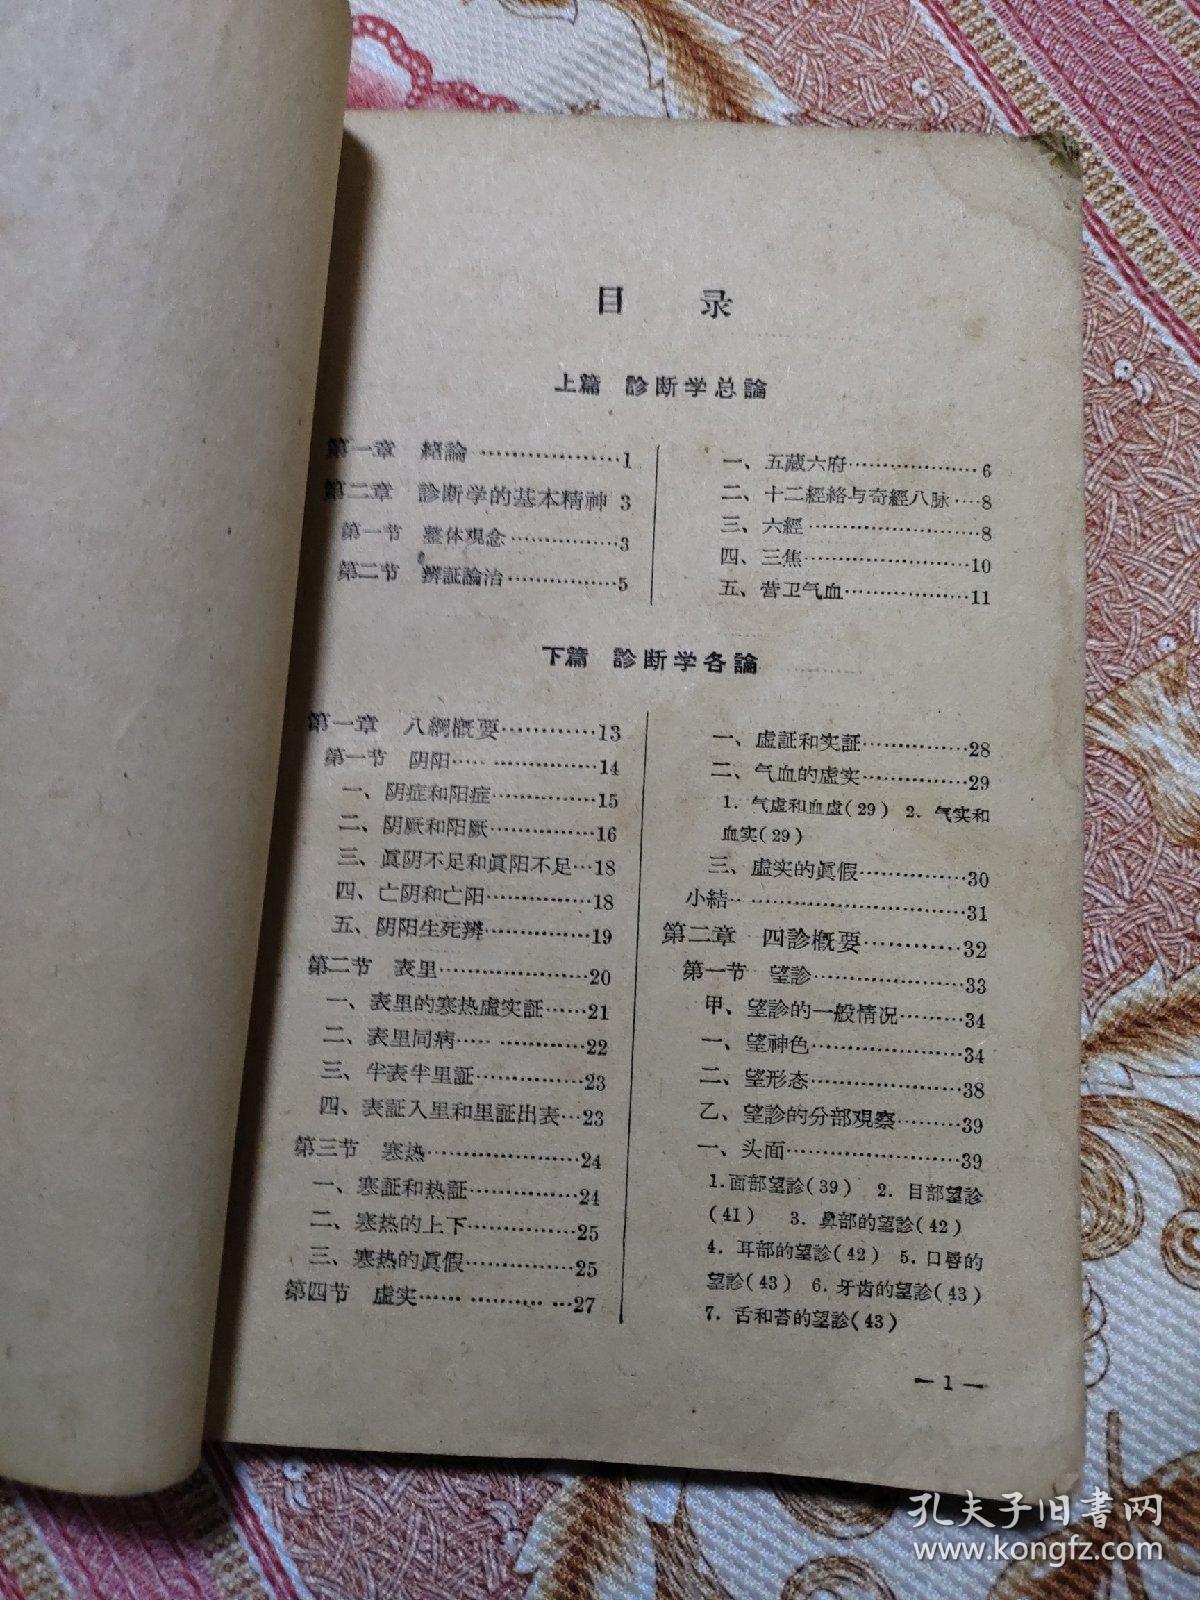 目 录
上篇 診断学总論
第一章 緒論…………………1
第二章 診断学的基本精神 3
第一节 整体观念……………3
第二节 辨証論治……………5
一、五藏六府………………6
二、十二經絡与奇經八脉…8
三、六經……………………8
四、三焦……………………10
五、营卫气血………………11
下篇 診断学各論
第一章 八綱概要…………13
第一节 阴阳………………14
一、阴症和阳症……………15
二、阴厥和阳厥……………16
三、眞阴不足和眞阳不足…18
四、亡阴和亡阳……………18
五、阴阳生死辨……………19
第二节 表里…………………20
一、表里的寒热虛实証……21
二、表里同病………………22
三、半表半里証……………23
四、表証入里和里証出表…23
第三节 寒热…………………24
一、寒証和热証……………24
二、寒热的上下……………25
三、寒热的眞假……………25
第四节 虛实…………………27
一、虛証和实証……………28
二、气血的虛实……………29
1. 气虛和血虛(29) 2. 气实和
血实(29)
三、虛实的眞假……………30
小結…………………………31
第二章 四診概要…………32
第一节 望診…………………33
甲、望診的一般情况………34
一、望神色…………………34
二、望形态…………………38
乙、望診的分部观察………39
一、头面……………………39
1.面部望診(39) 2. 目部望診
(41) 3. 鼻部的望診(42)
4. 耳部的望診(42) 5. 口唇的
望診(43) 6. 牙齿的望診(43)
7. 舌和苔的望診(43)
— 1 —
孔夫子旧書网
www.kongfz.com